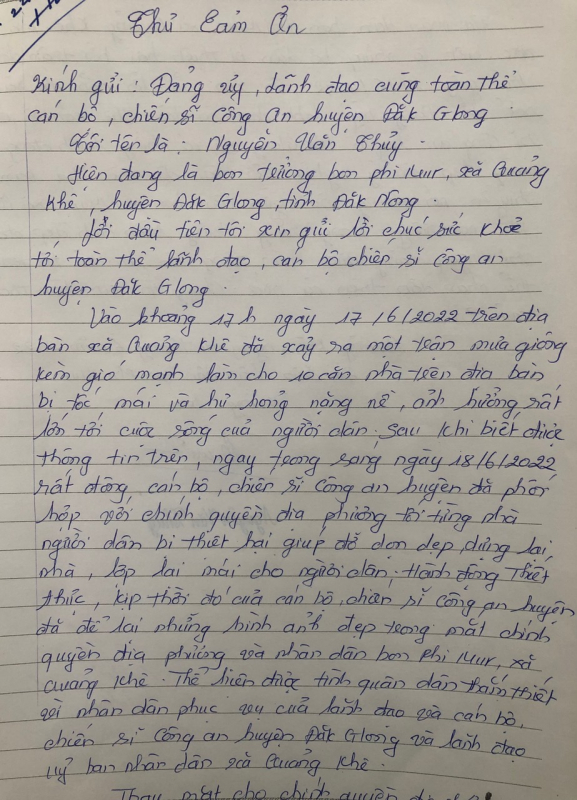 Thư Cảm Ơn
Kính gửi : Đảng ủy, lãnh đạo cùng toàn thể
cán bộ, chiến sĩ Công An huyện Đắk Glong
Tôi tên là : Nguyễn Văn Thủy.
Hiện đang là bon trưởng bon phi Mur, xã Quảng
Khê, huyện Đắk Glong, tỉnh Đắk Nông.
Lời đầu tiên tôi xin gửi lời chúc sức khoẻ
tới toàn thể lãnh đạo, cán bộ chiến sĩ công an
huyện Đắk Glong.
Vào khoảng 17h ngày 17/6/2022 trên địa
bàn xã Quảng Khê đã xảy ra một trận mưa giông
kèm gió mạnh làm cho 10 căn nhà trên địa bàn
bị tốc mái và hư hỏng nặng nề, ảnh hưởng rất
lớn tới cuộc sống của người dân. Sau khi biết được
thông tin trên, ngay trong sáng ngày 18/6/2022
rất đông cán bộ, chiến sĩ Công an huyện đã phối
hợp với chính quyền địa phương tới từng nhà
người dân bị thiệt hại giúp đỡ dọn dẹp, dựng lại
nhà, lợp lại mái cho người dân. Hành động Thiết
thực, kịp thời đó của cán bộ, chiến sĩ công an huyện
đã để lại những hình ảnh đẹp trong mắt chính
quyền địa phương và nhân dân bon Phi Mur, xã
Quảng Khê. Thể hiện được tình quân dân thắm thiết
vì nhân dân phục vụ của lãnh đạo và cán bộ,
chiến sĩ Công an huyện Đắk Glong và lãnh đạo
uỷ ban nhân dân xã Quảng Khê.
Thay mặt cho chính quyền